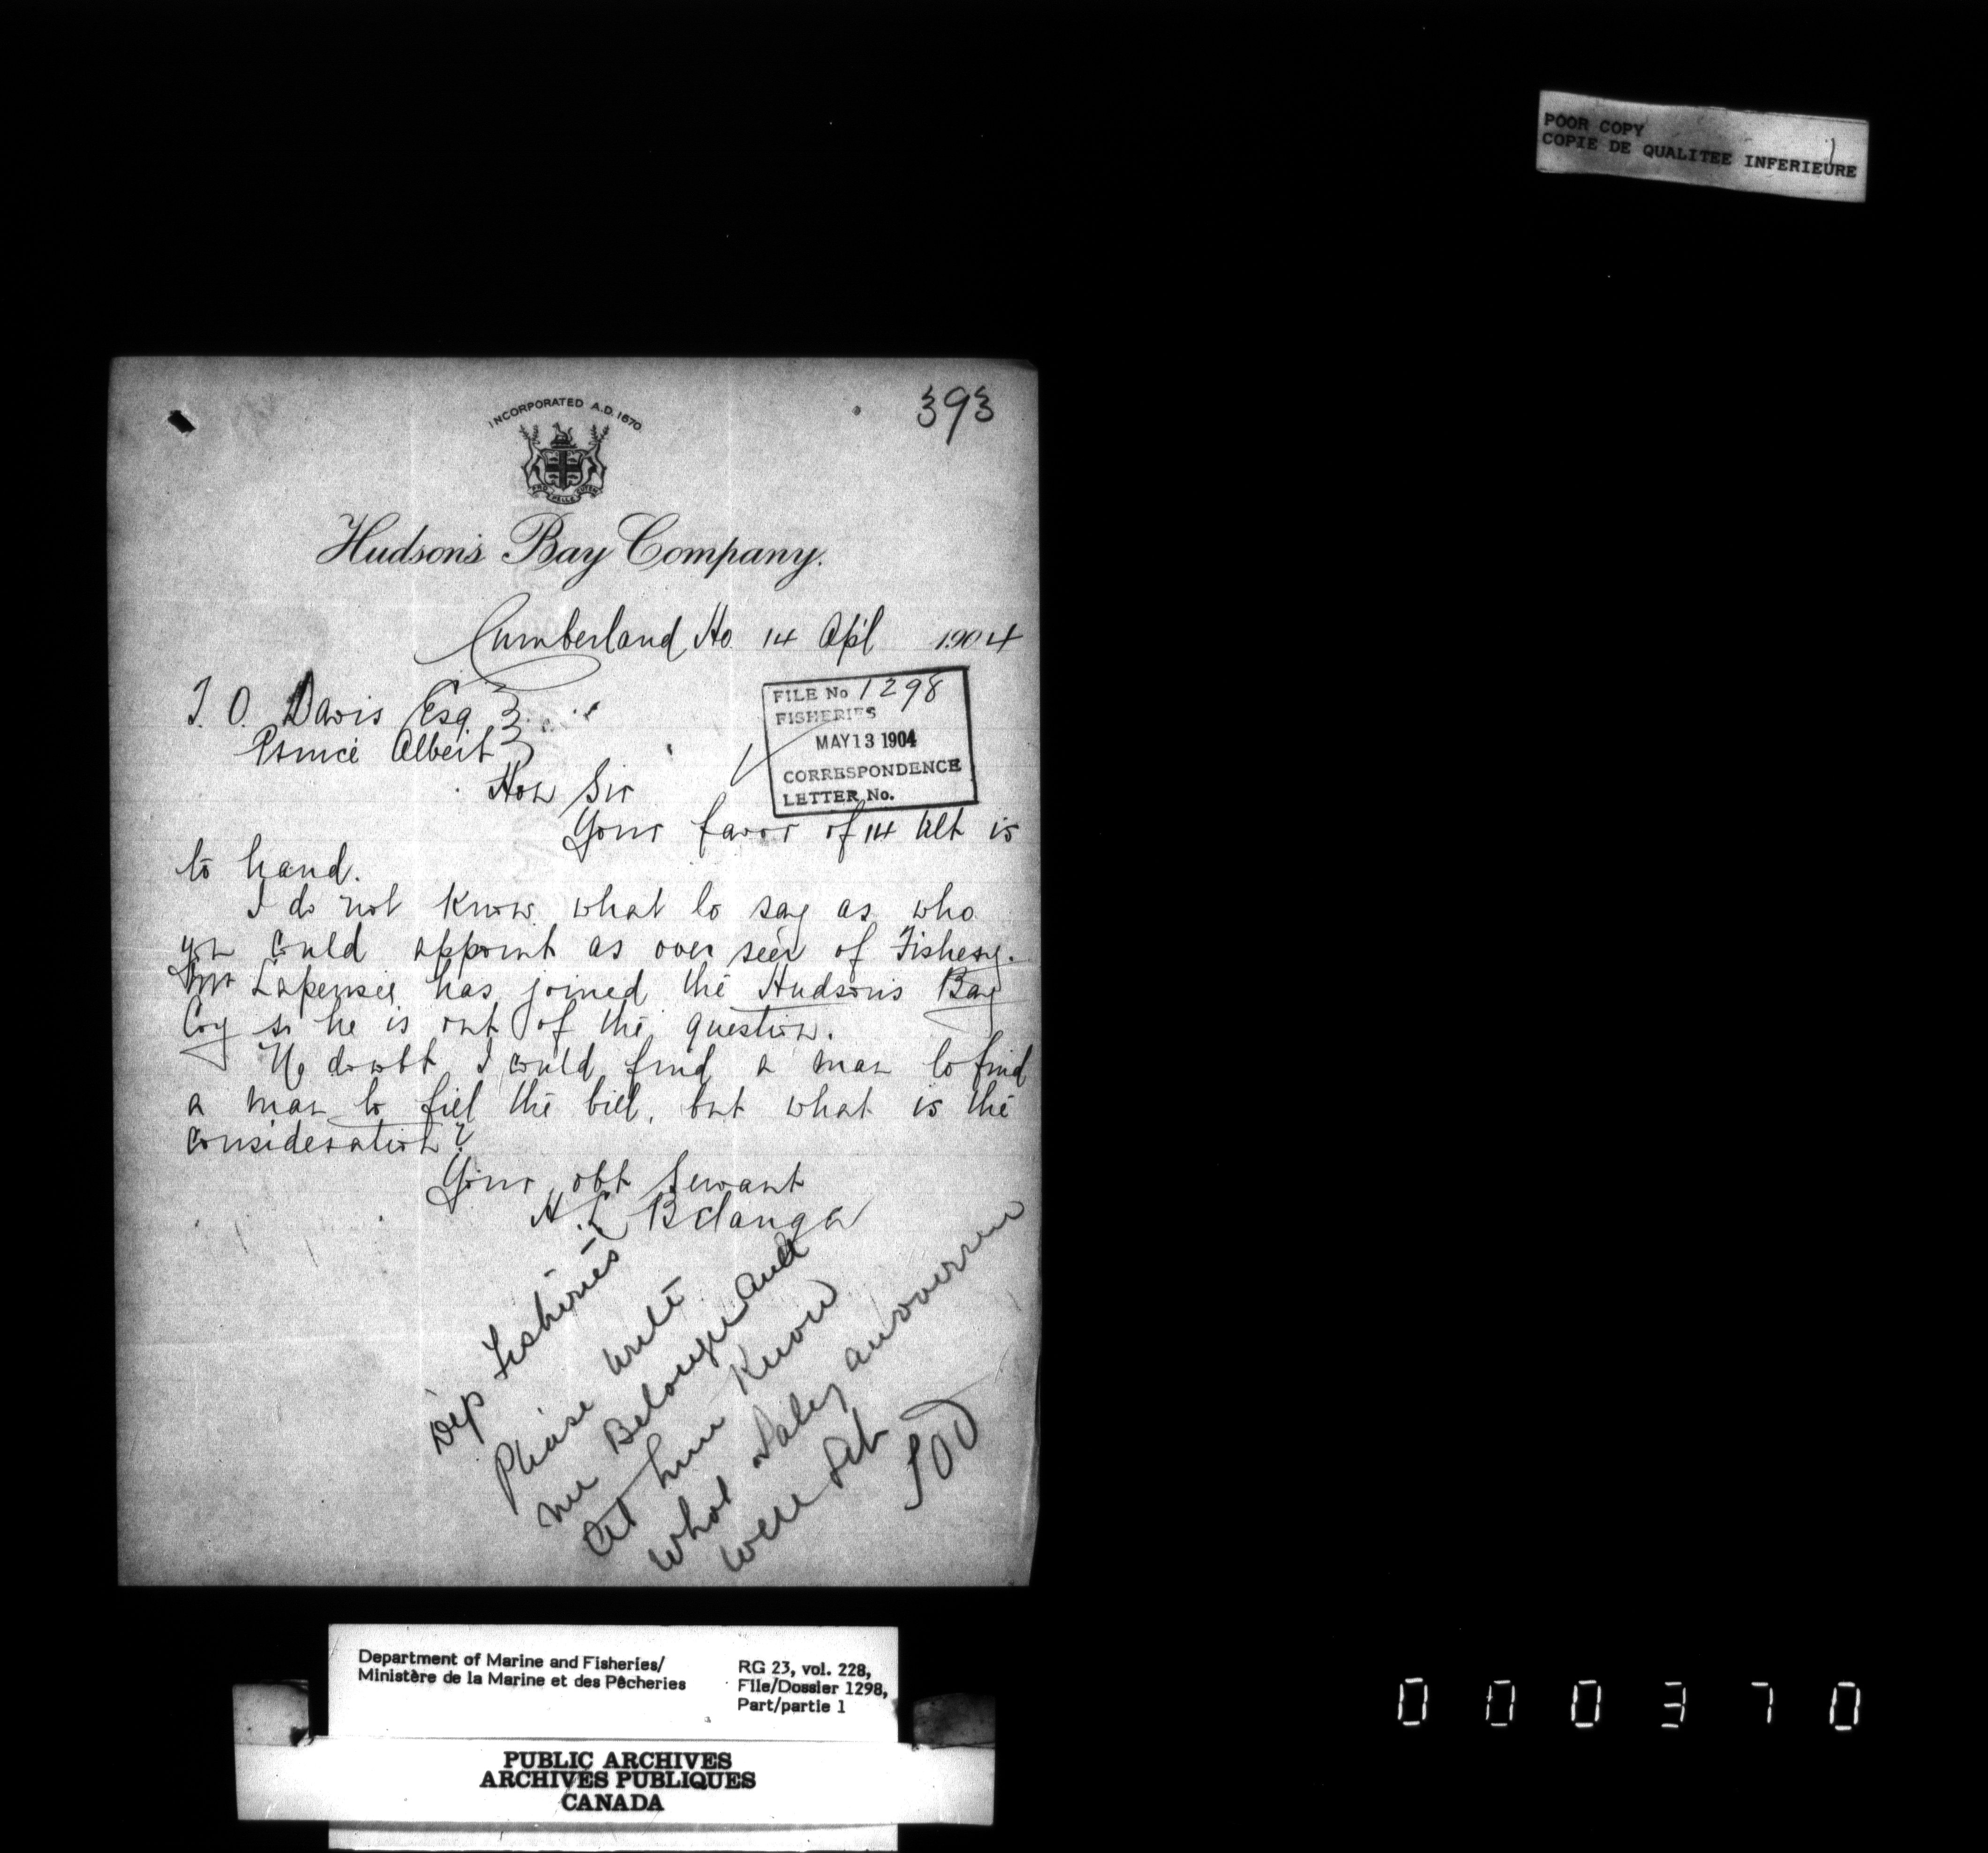 POOR COPY
COPIE DE QUALITEE INFERIEURE
393
INCORPORATED A.D. 1670.
PRO PELLE CUTEM
Hudson's Bay Company.
Cumberland Ho 14 Apl 1904
T. O. Davis Esq
Prince Albert
FILE No 1298
FISHERIES
MAY 13 1904
CORRESPONDENCE
LETTER No.
Hon Sir
Your favor of 14 Ult is
to hand.
I do not know what to say as who
you could appoint as over seer of Fishery.
Mr Lapensie has joined the Hudson's Bay
Coy so he is out of the question.
No doubt I could find a man to find
a man to fill the bill, but what is the
consideration?
Your obt Servant
H. Belanger
Dep Fisheries
Please write
Mr Belanger and
let him know
what Salery an overseer
were
TOD
Department of Marine and Fisheries/
Ministère de la Marine et des Pêcheries
RG 23, vol. 228,
File/Dossier 1298,
Part/partie 1
PUBLIC ARCHIVES
ARCHIVES PUBLIQUES
CANADA
000370